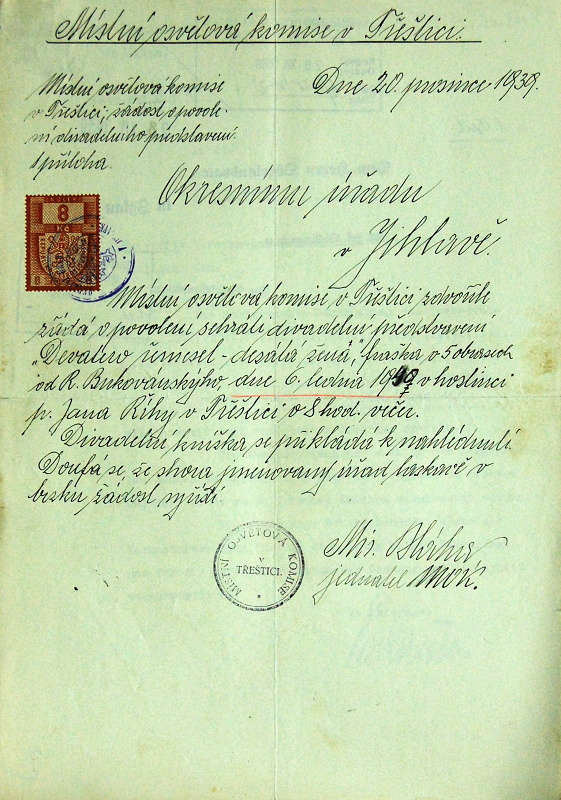 Místní osvětová komise v Třeštici.
Dne 20. prosince 1939.
Místní osvětová komise
v Třeštici; žádost o povole-
ní divadelního představení.
1 příloha.
Okresnímu úřadu
v Jihlavě.
8
Kč
8 8
Místní osvětová komise v Třeštici zdvořile
žádá o povolení sehráti divadelní představení
„Devatero řemesel - desátá žena", fraška v 5 obrazech
od R. Bukovanskýho, dne 6. ledna 1940 v hostinci
p. Jana Říhy v Třeštici o 8 hod. večer.
Divadelní knížka se přikládá k nahlédnutí.
Doufá se, že shora jmenovaný úřad laskavě v
brzku žádost vyřídí.
MÍSTNÍ OSVĚTOVÁ KOMISE
V
TŘEŠTICI.
Mir. Bláha
jednatel MOK.